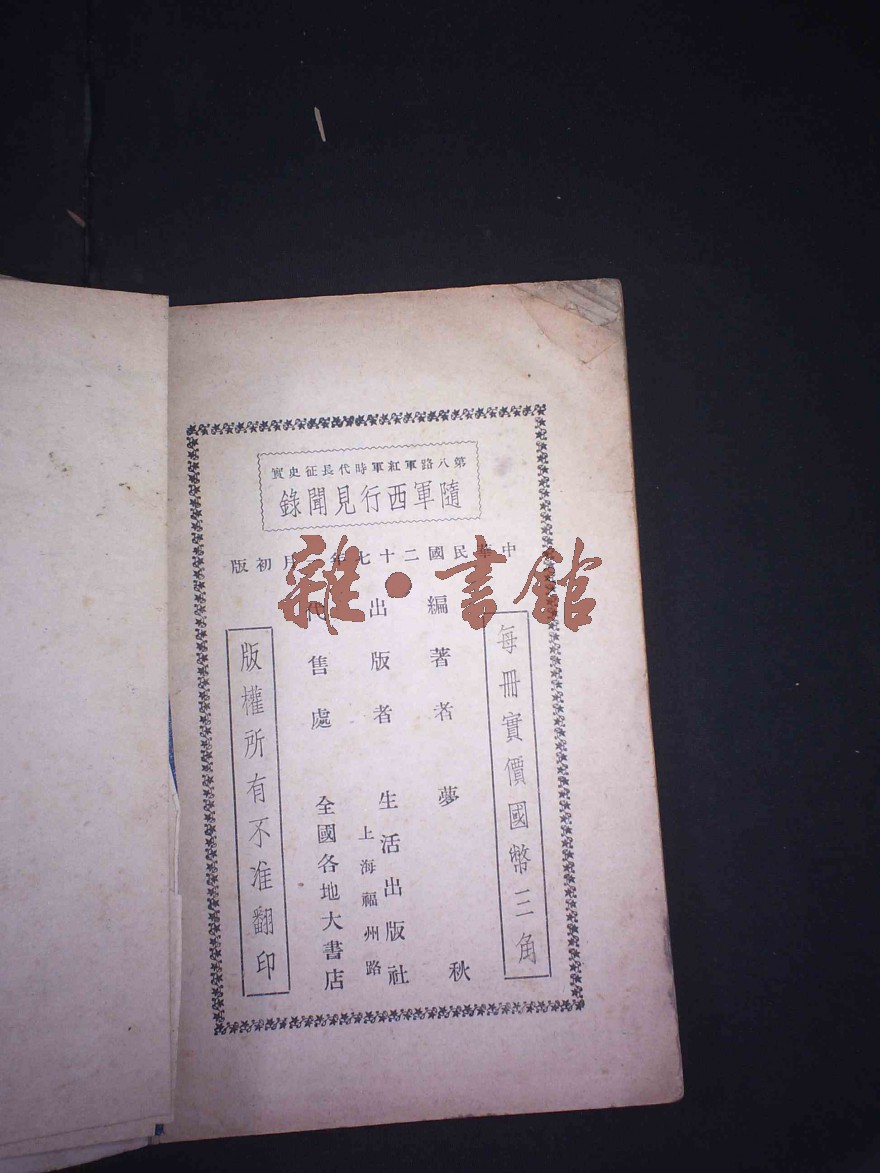 第八路軍紅軍時代長征史實
隨軍西行見聞錄
中華民國二十七年 月初版
每冊實價國幣三角
編著者 夢秋
出版者 生活出版社
上海福州路
代售處 全國各地大書店
版權所有不准翻印
雜·書館